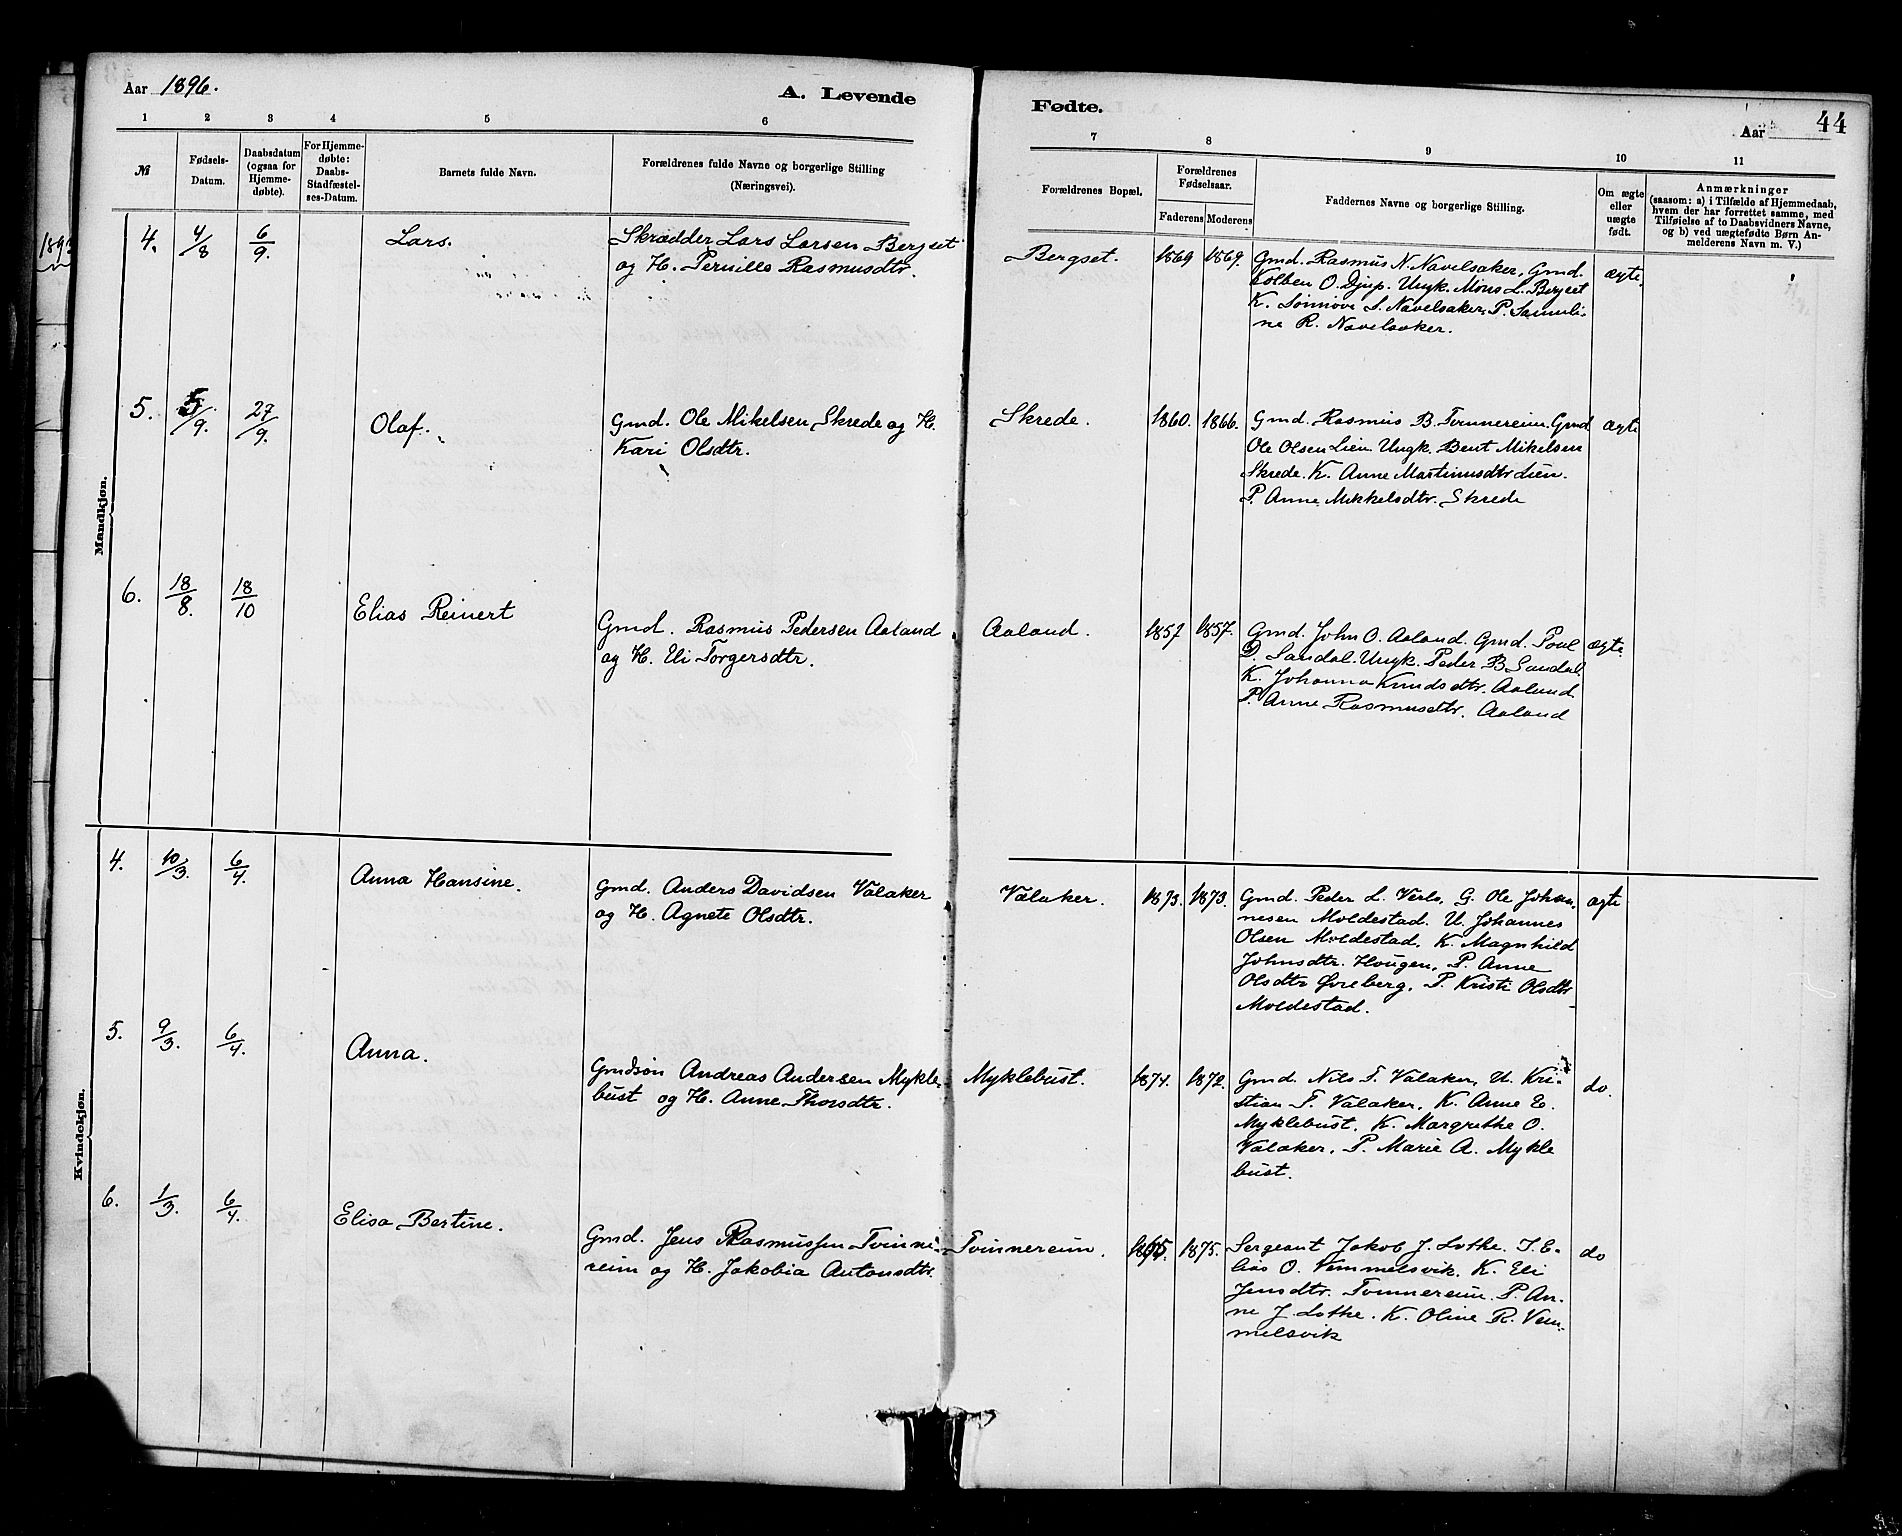 Aar 1896.
A. Levende
Fødte.
Aar 44
1 2 3 4 5 6
7 8 9 10 11
№
Fødsels-
Datum.
Daabsdatum
(ogsaa for
Hjemme-
døbte).
For Hjemme-
døbte:
Daabs-
Stadfæstel-
ses-Datum.
Barnets fulde Navn.
Forældrenes fulde Navne og borgerlige Stilling
(Næringsvei).
Forældrenes Bopæl.
Forældrenes
Fødselsaar.
Faderens Moderens
Faddernes Navne og borgerlige Stilling.
Om ægte
eller
uægte
født.
Anmærkninger
(saasom: a) i Tilfælde af Hjemmedaab,
hvem der har forrettet samme, med
Tilføielse af to Daabsvidners Navne,
og b) ved uægtefødte Børn An-
melderens Navn m. V.)
1893
Mandkjøn.
4. 4/8 6/9. Lars.
Skrædder Lars Larsen Bergset
og H. Pernille Rasmusdtr.
Bergset. 1869 1869.
Gmd. Rasmus N. Navelsaker, Gmd.
Kolben O. Djup. Ungk. Mons L. Bergset
K. Sønnøve S. Navelsaker, P. Samuli-
ne R. Navelsaker.
ægte.
5. 5/9. 27/9. Olaf.
Gmd. Ole Mikelsen Skrede og H.
Kari Olsdtr.
Skrede. 1860. 1866.
Gmd. Rasmus B. Tvinnereim. Gmd
Ole Olsen Lien. Ungk. Bent Mikelsen
Skrede. K. Anne Martinusdtr Lien.
P. Anne Mikkelsdtr. Skrede
ægte
6. 18/8. 18/10 Elias Reinert
Gmd. Rasmus Pedersen Aaland
og H. Eli Torgersdtr.
Aaland. 1857 1857.
Gmd. John O. Aaland. Gmd. Poul
D. Sandal. Ungk. Peder B Sandal.
K. Johanna Knudsdtr. Aaland
P. Anne Rasmusdtr. Aaland
ægte.
Kvindekjøn.
4. 10/3. 6/4. Anna Hansine.
Gmd. Anders Davidsen Valaker
og H. Agnete Olsdtr.
Valaker. 1873. 1873.
Gmd. Peder L. Verlo, G. Ole Johan-
nesen Moldestad. U. Johannes
Olsen Moldestad. K. Magnhild
Johnsdtr. Hougen, P. Anne
Olsdtr Øvreberg, P. Kristi Olsdtr
Moldestad.
ægte
5. 9/3. 6/4. Anna.
Gmdsøn Andreas Andersen Mykle-
bust og H. Anne Thorsdtr.
Myklebust. 1871. 1872.
Gmd. Nils T. Valaker, U. Kri-
stian T. Valaker, K. Anne E.
Myklebust. K. Margrethe O.
Valaker. P. Marie A. Mykle
bust.
do.
6. 1/3. 6/4. Elisa Bertine.
Gmd. Jens Rasmussen Tvinne-
reim og H. Jakobia Antonsdtr.
Tvinnereim. 1875.
Sergeant Jakob J. Lothe. S. E-
lias O. Vemmelsvik. K. Eli
Jensdtr. Tvinnereim. P. An-
ne J. Lothe. K. Oline R. Vem-
melsvik
do